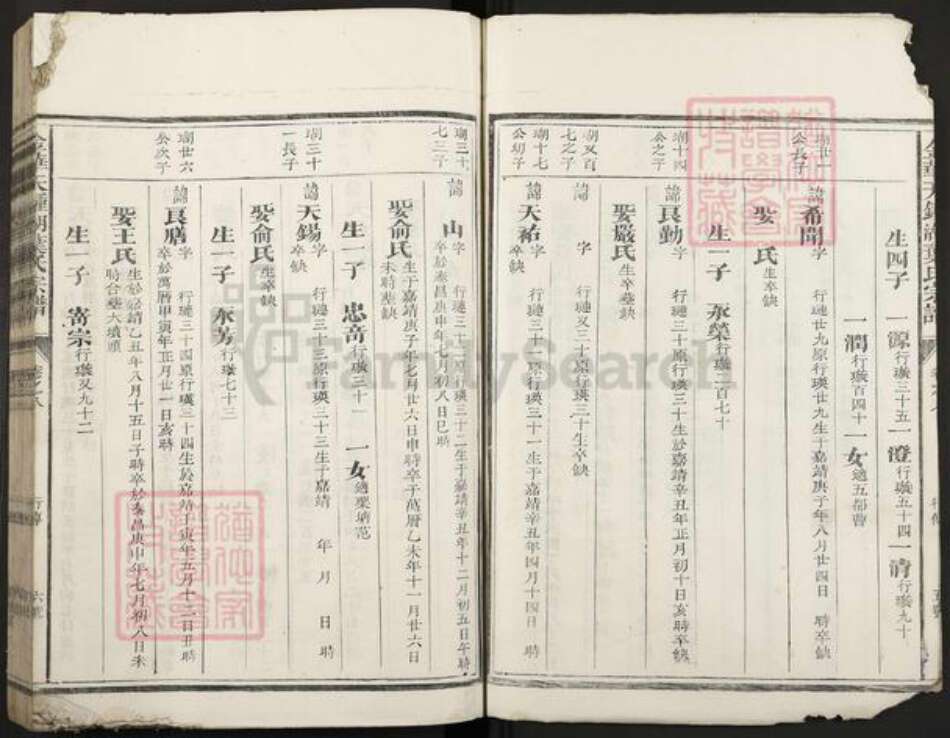 生四子 一源行璇三五 一澄行璇五十四 一清行璇九十
一潤行璇百四十 一女適五都曹
瑚廿一公長子
諱希聞字 行璉廿九原行瑛廿九生于嘉靖庚子年八月廿四日 時卒缺
娶 氏生卒缺
生一子 永榮行璇二百七十
瑚十四公之子
諱良勤字 行璉三十原行瑛三十生於嘉靖辛丑年正月初十日亥時卒缺
娶嚴氏生卒塟缺
瑚又百七之子
字 行璉又三十原行瑛三十生卒缺
瑚十七公幼子
諱天祐字 行璉三十一原行瑛三十一生于嘉靖辛丑年四月十四日 時
瑚三十七三子
諱 山字 行璉三十二原行瑛三十二生于嘉靖辛丑年十二月初五日午時
卒於泰昌庚申年七月初八日巳時
娶俞氏生于嘉靖庚子年七月廿六日申時卒于萬曆乙未年十一月廿六日
未時塟缺
生一子 忠 行璇三十一 一女適 范
瑚三十一長子
諱天錫字 行璉三十三原行瑛三十三生于嘉靖 年 月 日 時
卒缺
娶俞氏生卒缺
生一子 永芳行璇七十三
瑚廿六公次子
諱良 字 行璉三十四原行瑛三十四生於嘉靖壬寅年五月十二日丑時
卒於萬曆甲寅年正月廿一日亥時
娶王氏生於嘉靖乙丑年八月十五日子時卒於泰昌庚申年七月初八日未
時合塟大墳頭
生一子 寄宗行璇又九十二
FamilySearch